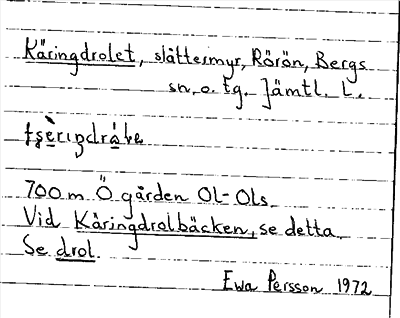 Käringdrolet, slåttesmyr, Rörön, Bergs
sn. o. tg. Jämtl. L.
700 m Ö gården Ol-Ols.
Vid Käringdrolbäcken, se detta.
Se drol.
Ewa Persson 1972